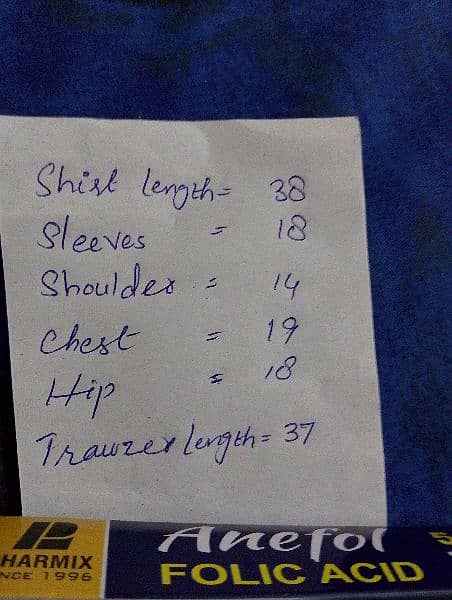 Shirt length = 38
Sleeves = 18
Shoulder = 14
Chest = 19
Hip = 18
Trawzer length = 37
Anefol 5
HARMIX
NCE 1996
FOLIC ACID